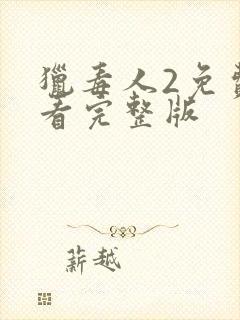 獵毒人2免費
看完整版
薪越